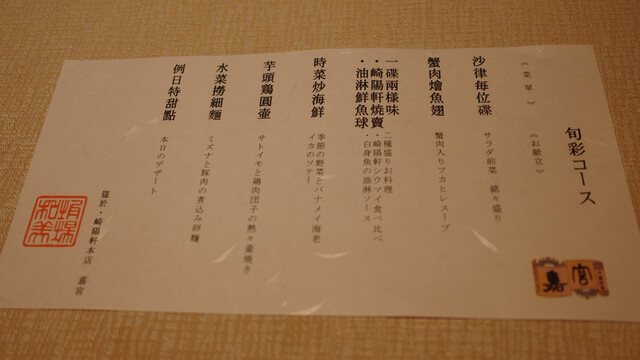 旬彩コース
《菜單》
《お献立》
沙律每位碟
サラダ前菜 銘々盛り
蟹肉燴魚翅
蟹肉入りフカヒレスープ
一碟兩様味
二種盛りお料理
・崎陽軒燒賣
・崎陽軒シウマイ食べ比べ
・油淋鮮魚球
・白身魚の油淋ソース
時菜炒海鮮
季節の野菜とバナメイ海老
イカのソテー
芋頭鶏圓壷
サトイモと鶏肉団子の熱々釜焼き
水菜撈細麵
ミズナと豚肉の煮込み卵麺
例日特甜點
本日のデザート
簺於・崎陽軒本店 嘉宮
嘉宮